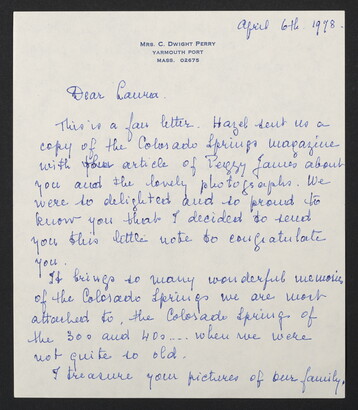 April 6th 1978.
MRS. C. DWIGHT PERRY
YARMOUTH PORT
MASS. 02675
Dear Laura.
This is a fan letter. Hazel sent us a
copy of the Colorado Springs magazine
with article of Peggy James about
you and the lovely photographs. We
were so delighted and so proud to
know you that I decided to send
you this little note to congratulate
you.
It brings so many wonderful memories
of the Colorado Springs we are most
attached to, the Colorado Springs of
the 30s and 40s.... when we were
not quite so old.
I treasure your pictures of our family.